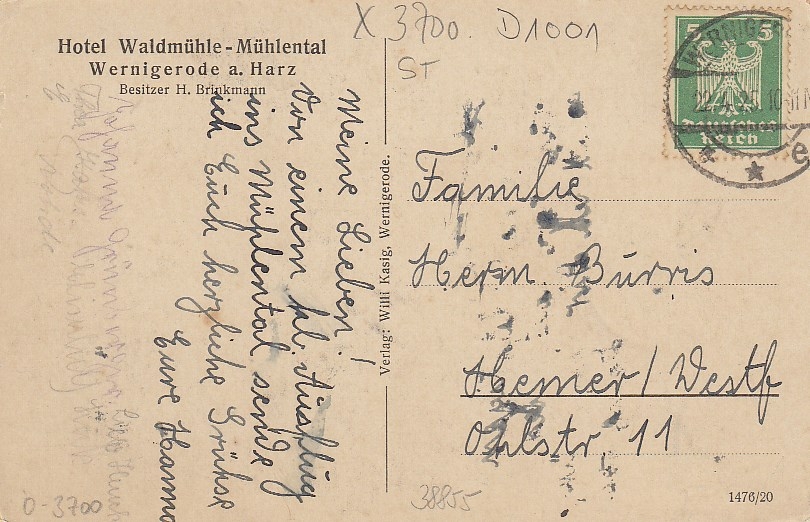 Hotel Waldmühle-Mühlental
Wernigerode a. Harz
Besitzer H. Brinkmann
X 3700. D1001
ST
5 5
Deutsches
Reich
22.4.25. 10-11
Meine Lieben!
Von einem kl. Ausflug
ins Mühlental sende
ich Euch herzliche Grüße
Eure Hanna
Verlag: Willi Kasig, Wernigerode.
Familie
Herm. Burris
Hemer/Westf
Ohlstr 11
0-3700
38855
1476/20